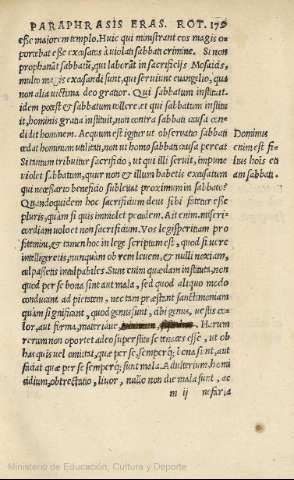 PARAPHRASIS ERAS. ROT. 179
esse maiorem templo. Huic qui ministrant eos magis o-
porebat esse excusatos à violati sabbati crimine. Si non
prophanāt sabbatū, qui laborāt in sacrificijs Mosaicis,
multo magis excusandi sunt, qui seruiunt euangelio, qua
non alia uictima deo gratior. Qui sabbatum instituit,
idem potest & sabbatum tollere, et qui sabbatum institu
it, hominis gratia instituit, non contra sabbati causa con
didit hominem. Aequum est igitur ut obseruatio sabbati
cædat hominum utilitati, non ut homo sabbati causa pereat
Si tantum tribuitur sacrificio, ut qui illi seruit, impune
violet sabbatum, quur non & illum habetis excusatum
qui necessario beneficio subleuat proximum in sabbato?
Quandoquidem hoc sacrificium deus sibi fatetur esse
pluris, quàm si quis immolet pecudem. Ait enim, miseri-
cordiam uolo et non sacrificium. Vos legisperitam pro
fitemini, & tamen hoc in lege scriptum est, quod si uere
intelligeretis, nunquam ob rem leuem, & nulli noxiam,
culpassetis inculpabiles. Sunt enim quædam instituta, non
quod per se bona sint aut mala, sed quod aliquo modo
conducant ad pietatem, nec tam præstant sanctimoniam
quàm significant, quod genus sunt, cibi genus, uestis co-
lor, aut forma, materiáue Harum
rerum non oportet adeo superstitiose tenaces esse, ut ob
has quis uel omittat, quæ per se, semperq; bona sint, aut
faciat quæ per se semperq; sunt mala. Adulterium, homi
cidium, obtrectatio, liuor, nullo non die mala sunt, ac
m ij nefaria
Dominus
enim est fi
lius hois eti
am sabbati.
Ministerio de Educación, Cultura y Deporte